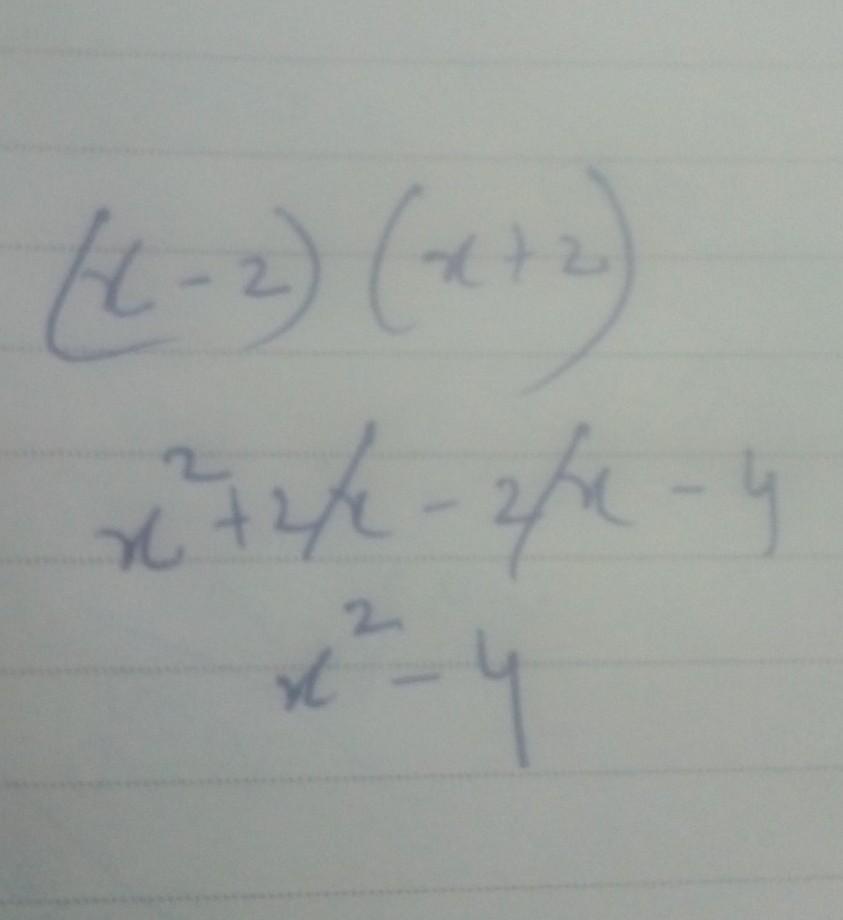 (x - 2) (x + 2)
x² + 2x - 2x - 4
x² - 4